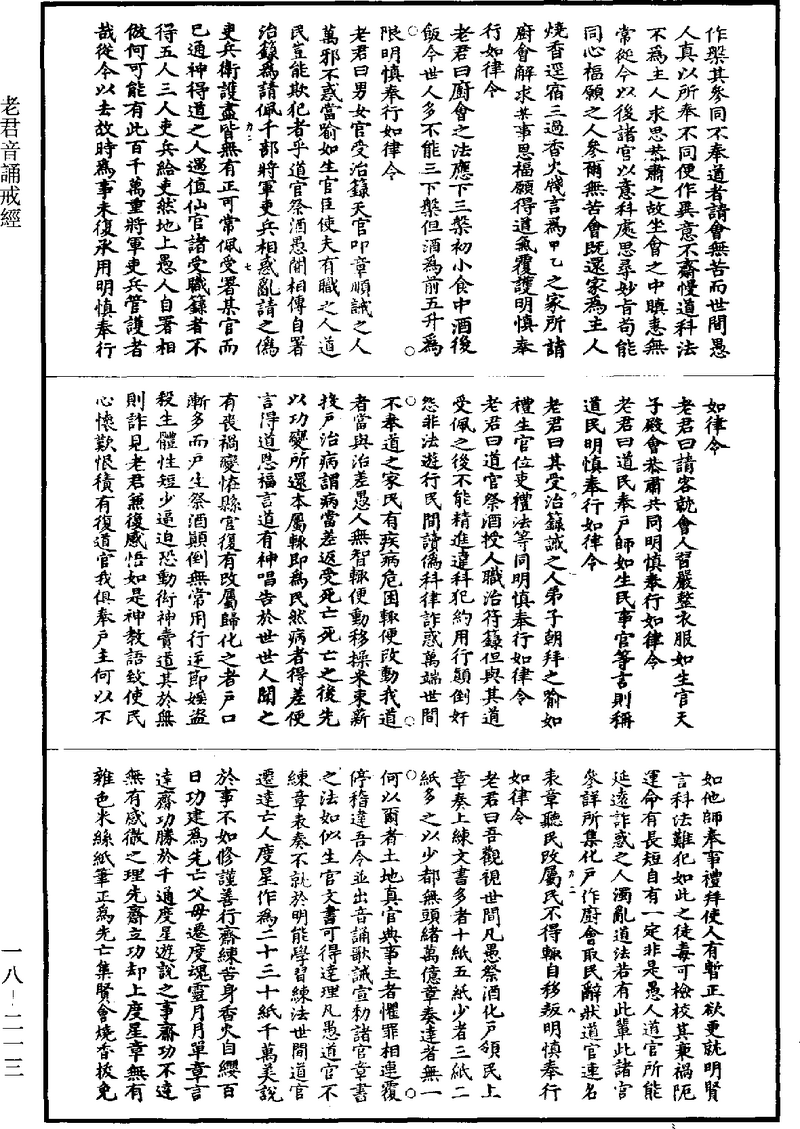 老君音誦戒經
一八—二一三
作槃其參同不奉道者請會無苦而世間愚
人真以所奉不同便作異意不齋慢道科法
不為主人求思恭肅之故生會之中瞋恚無
常從今以後諸官以意科處思尋妙旨苟能
同心福願之人參爾無苦會既還家為主人
燒香逕宿三過香火牋言為甲乙之家所請
廚會解求某事恩福願得道氣覆護明慎奉
行如律令
老君曰廚會之法應下三槃初小食中酒後
飯今世人多不能三下槃但酒為前五升為
限明慎奉行如律令
老君曰男女官受治籙天官叩章順誡之人
萬邪不惑當喻如生官臣使夫有職之人道
民豈能欺犯者乎道官祭酒愚闇相傳自署
治籙為請佩千部將軍吏兵相惑亂請之僞
吏兵衛護盡皆無有正可常佩受署某官而
已通神得道之人遇值仙官諸受職籙者不
得五人三人吏兵給吏然地上愚人自署相
倣何可能有此百千萬重將軍吏兵管護者
哉從今以去故時為事未復承用明慎奉行
如律令
老君曰請客就會人習嚴整衣服如生官天
子殿會恭肅共同明慎奉行如律令
老君曰道民奉戶師如生民事官等言則稱
道民明慎奉行如律令
老君曰其受治籙誡之人弟子朝拜之喻如
禮生官位吏禮法等同明慎奉行如律令
老君曰道官祭酒授人職治符籙但與其道
受佩之後不能精進違科犯約用行顛倒奸
怨非法遊行民間讀僞科律詐惑萬端世間
不奉道之家民有疾病危困輒便改動我道
者當與治差愚人無智輒便動移操米束薪
投戶治病謂病當差返受死亡死亡之後先
以功變所還本屬輒即為民然病者得差便
言得道恩福言道有神唱告於世世人聞之
有喪禍變怪縣官復有改屬歸化之者戶口
漸多而戶生祭酒顛倒無常用行逆即婬盜
殺生體性短少逼迫恐動衒神賣道其於無
則詐見老君兼復感悟如是神教語致使民
心懷歎恨積有復道官我俱奉戶主何以不
如他師奉事禮拜使人有暫正欲更就明賢
言科法難犯如此之徒毒可檢校其棄禍阨
運命有長短自有一定非是愚人道官所能
延遠詐惑之人濁亂道法若有此輩此諸官
參詳所集化戶作廚會取民辭狀道官連名
表章聽民改屬民不得輒自移叛明慎奉行
如律令
老君曰吾觀視世間凡愚祭酒化戶領民上
章奏上練文書多者十紙五紙少者三紙二
紙多之以少都無頭緒萬億章奏達者無一
何以爾者土地真官典事主者懼罪相連覆
停稽違吾今並出音誦歌誡宣勑諸官章書
之法如似生官文書可得達理凡愚道官不
練章表奏不就於明能學習練法世間道官
遷達亡人度星作為二十三十紙千萬美說
於事不如修謹善行齋練苦身香火自纓百
日功建為先亡父母遷度魂靈月月單章言
達齋功勝於千通度星遊說之事齋功不達
無有感徹之理先齋立功却上度星章無有
雜色米絲紙筆正為先亡集賢會燒香拔免